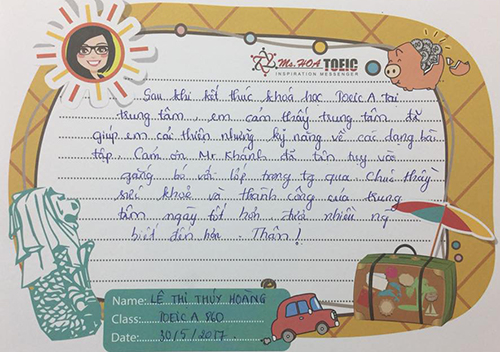 Ms.HOA TOEIC
INSPIRATION MESSENGER
Sau khi kết thúc khoá học TOEIC A tại
trung tâm, em cảm thấy trung tâm đã
giúp em cải thiện những kỹ năng về các dạng bài
tập. Cám ơn Mr. Khánh đã tận tuỵ và
gắng bó với lớp trong tg qua. Chúc thầy
sức khoẻ và thành công của trung
tâm ngày tốt hơn, được nhiều ng
biết đến hơn. Thân!
Name: LÊ THỊ THÚY HOÀNG
Class: TOEIC A 860
Date: 30/5/2017